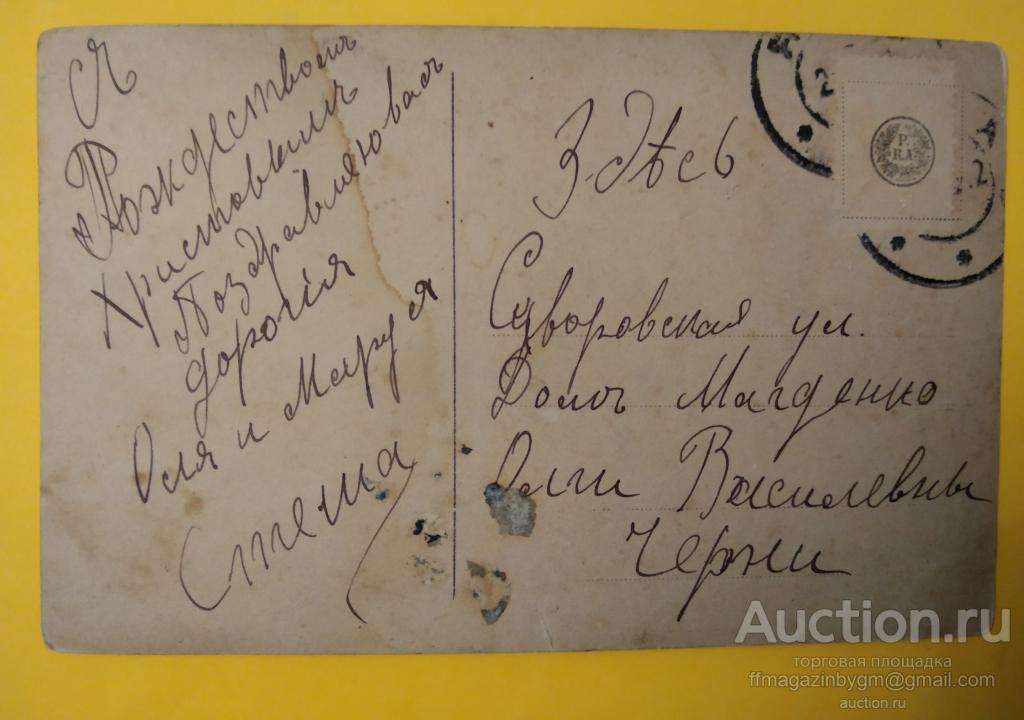 Я
Рождеством
Христовым
Поздравляю васъ
дорогія
Оля и Маруся
Стеша
Здѣсь
Суворовская ул.
Домъ Магденко
Олги Василевны
Черни
P.
R.A.
2
.2
Auction.ru
торговая площадка
ffmagazinbygm@gmail.com
auction.ru